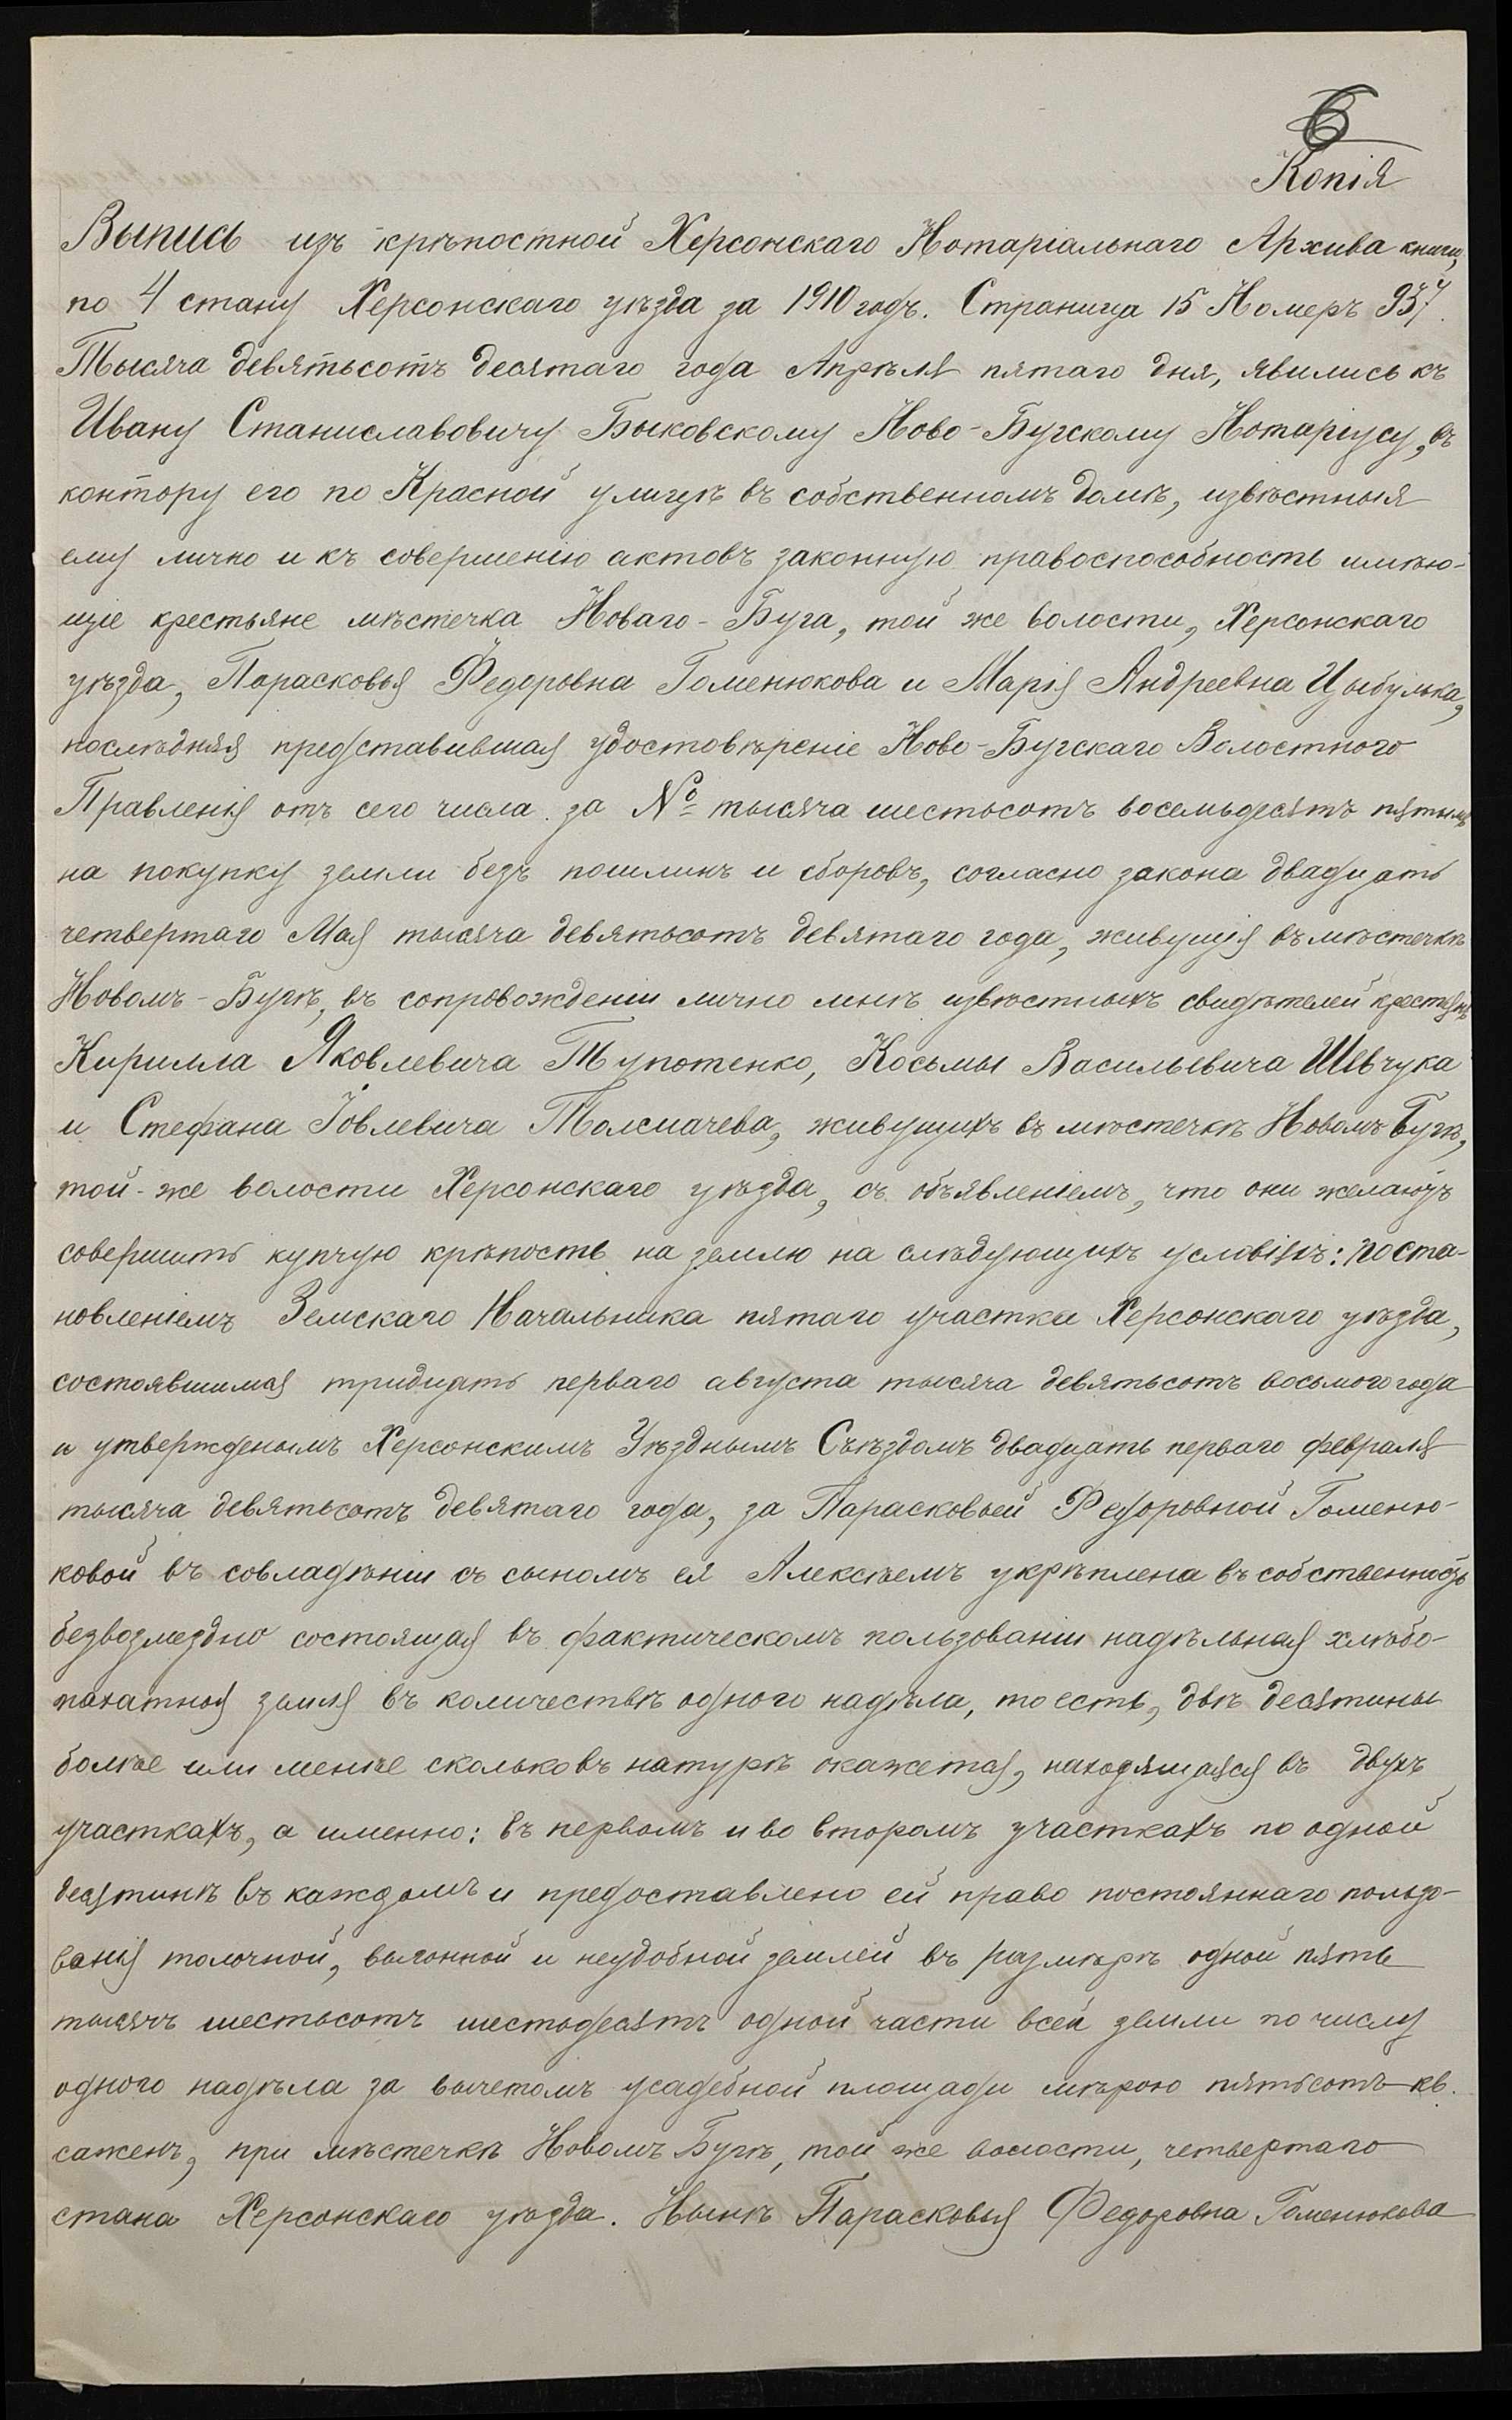 6
Копія
Выпись изъ крѣпостной Херсонскаго Нотаріальнаго Архива книги,
по 4 стану Херсонскаго уѣзда за 1910 годъ. Страница 15 Номеръ 957.
Тысяча девятьсотъ десятаго года Апрѣля пятаго дня, явились къ
Ивану Станиславовичу Быковскому Ново-Бугскому Нотаріусу, въ
контору его по Красной улицѣ въ собственномъ домѣ, извѣстныя
ему лично и къ совершенію актовъ законную правоспособность имѣю-
щіе крестьяне мѣстечка Новаго-Буга, той же волости, Херсонскаго
уѣзда, Парасковья Федоровна Гоменюкова и Марія Андреевна Цыбулька,
послѣдняя представившая удостовѣреніе Ново-Бугскаго Волостного
Правленія отъ сего числа за № тысяча шестьсотъ восемьдесятъ пятымъ
на покупку земли безъ пошлинъ и сборовъ, согласно закона двадцать
четвертаго Мая тысяча девятьсотъ девятаго года, живущія въ мѣстечкѣ
Новомъ-Бугѣ, въ сопровожденіи лично мнѣ извѣстныхъ свидѣтелей крестьянъ
Кирилла Яковлевича Тупотенко, Косьмы Васильевича Шевчука
и Стефана Іовлевича Толмачева, живущихъ въ мѣстечкѣ Новомъ Бугѣ,
той-же волости Херсонскаго уѣзда, съ объявленіемъ, что они желаютъ
совершить купчую крѣпость на землю на слѣдующихъ условіяхъ: поста-
новленіемъ Земскаго Начальника пятаго участка Херсонскаго уѣзда,
состоявшимся тридцать перваго августа тысяча девятьсотъ восьмого года
и утвержденымъ Херсонскимъ Уѣзднымъ Съѣздомъ двадцать перваго февраля
тысяча девятьсотъ девятаго года, за Парасковьей Федоровной Гоменю-
ковой въ совладѣніи съ сыномъ ея Алексѣемъ укрѣплена въ собственность
безвозмездно состоящая въ фактическомъ пользованіи надѣльная хлѣбо-
пахатная земля въ количествѣ одного надѣла, то есть, двѣ десятины
болѣе или менѣе сколько въ натурѣ окажется, находящаяся въ двухъ
участкахъ, а именно: въ первомъ и во второмъ участкахъ по одной
десятинѣ въ каждомъ и предоставлено ей право постояннаго пользо-
ванія толочной, выгонной и неудобной землей въ размѣрѣ одной пять
тысячъ шестьсотъ шестьдесятъ одной части всей земли по числу
одного надѣла за вычетомъ усадебной площади мѣрою пятьсотъ кв.
саженъ, при мѣстечкѣ Новомъ Бугѣ, той же волости, четвертаго
стана Херсонскаго уѣзда. Нынѣ Парасковья Федоровна Гоменюкова